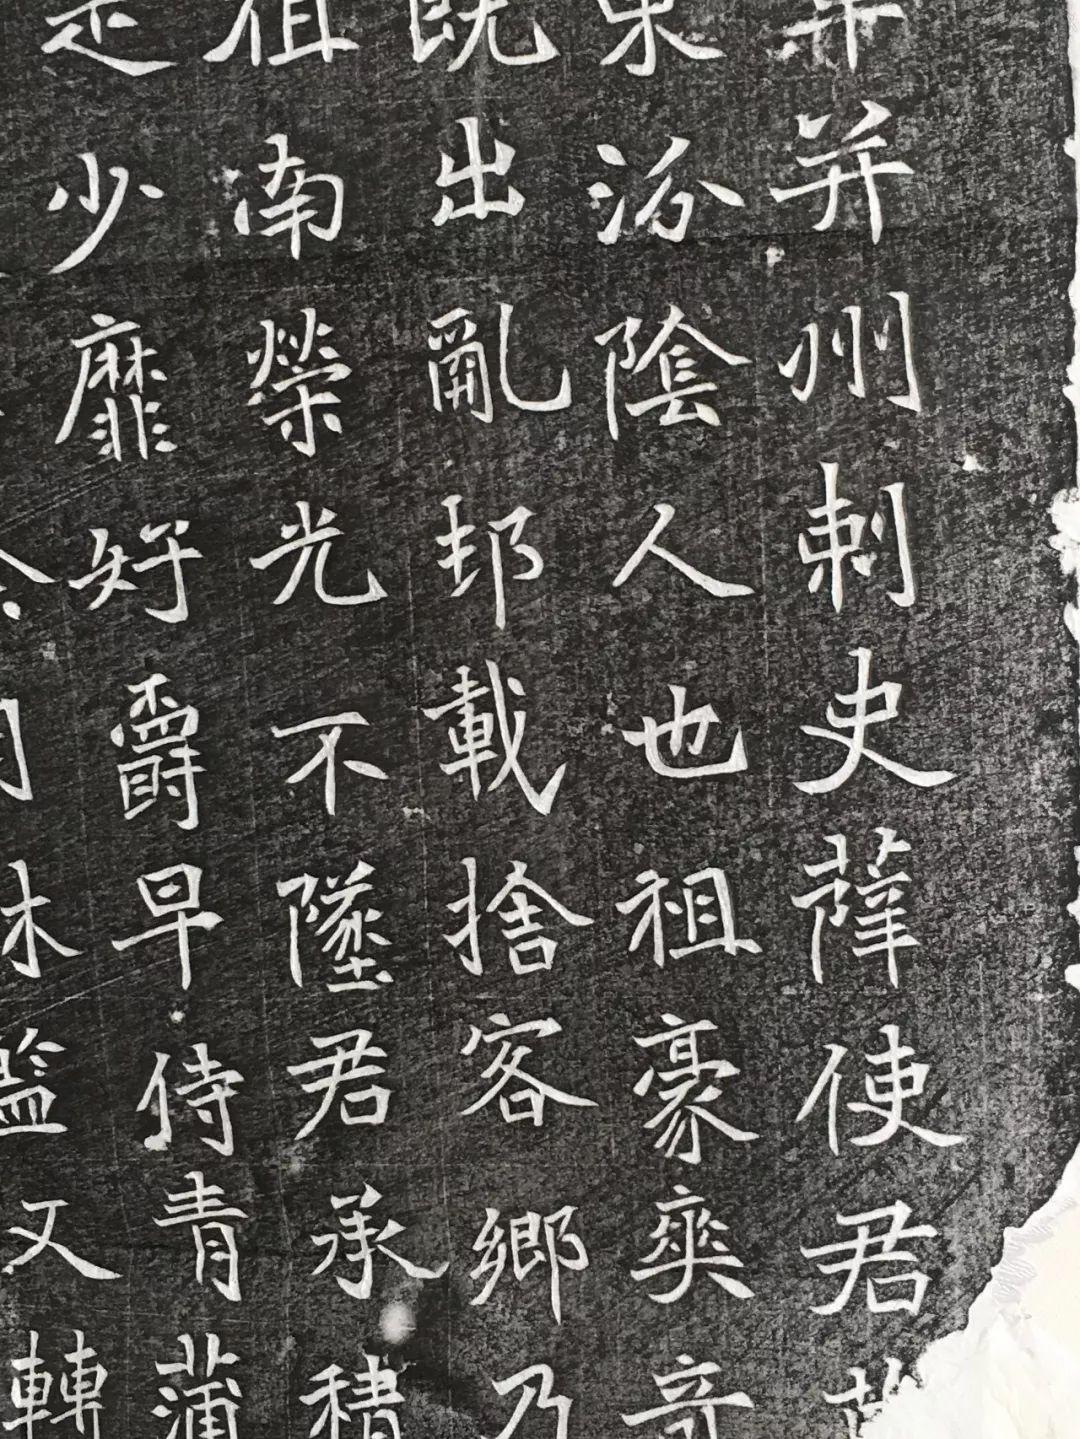 并州刺史薛使君
東汾陰人也祖豪奕奇
既出亂邦載捨客鄉乃
徂南榮光不墜君承積
少靡好爵早侍青蒲
林監文轉